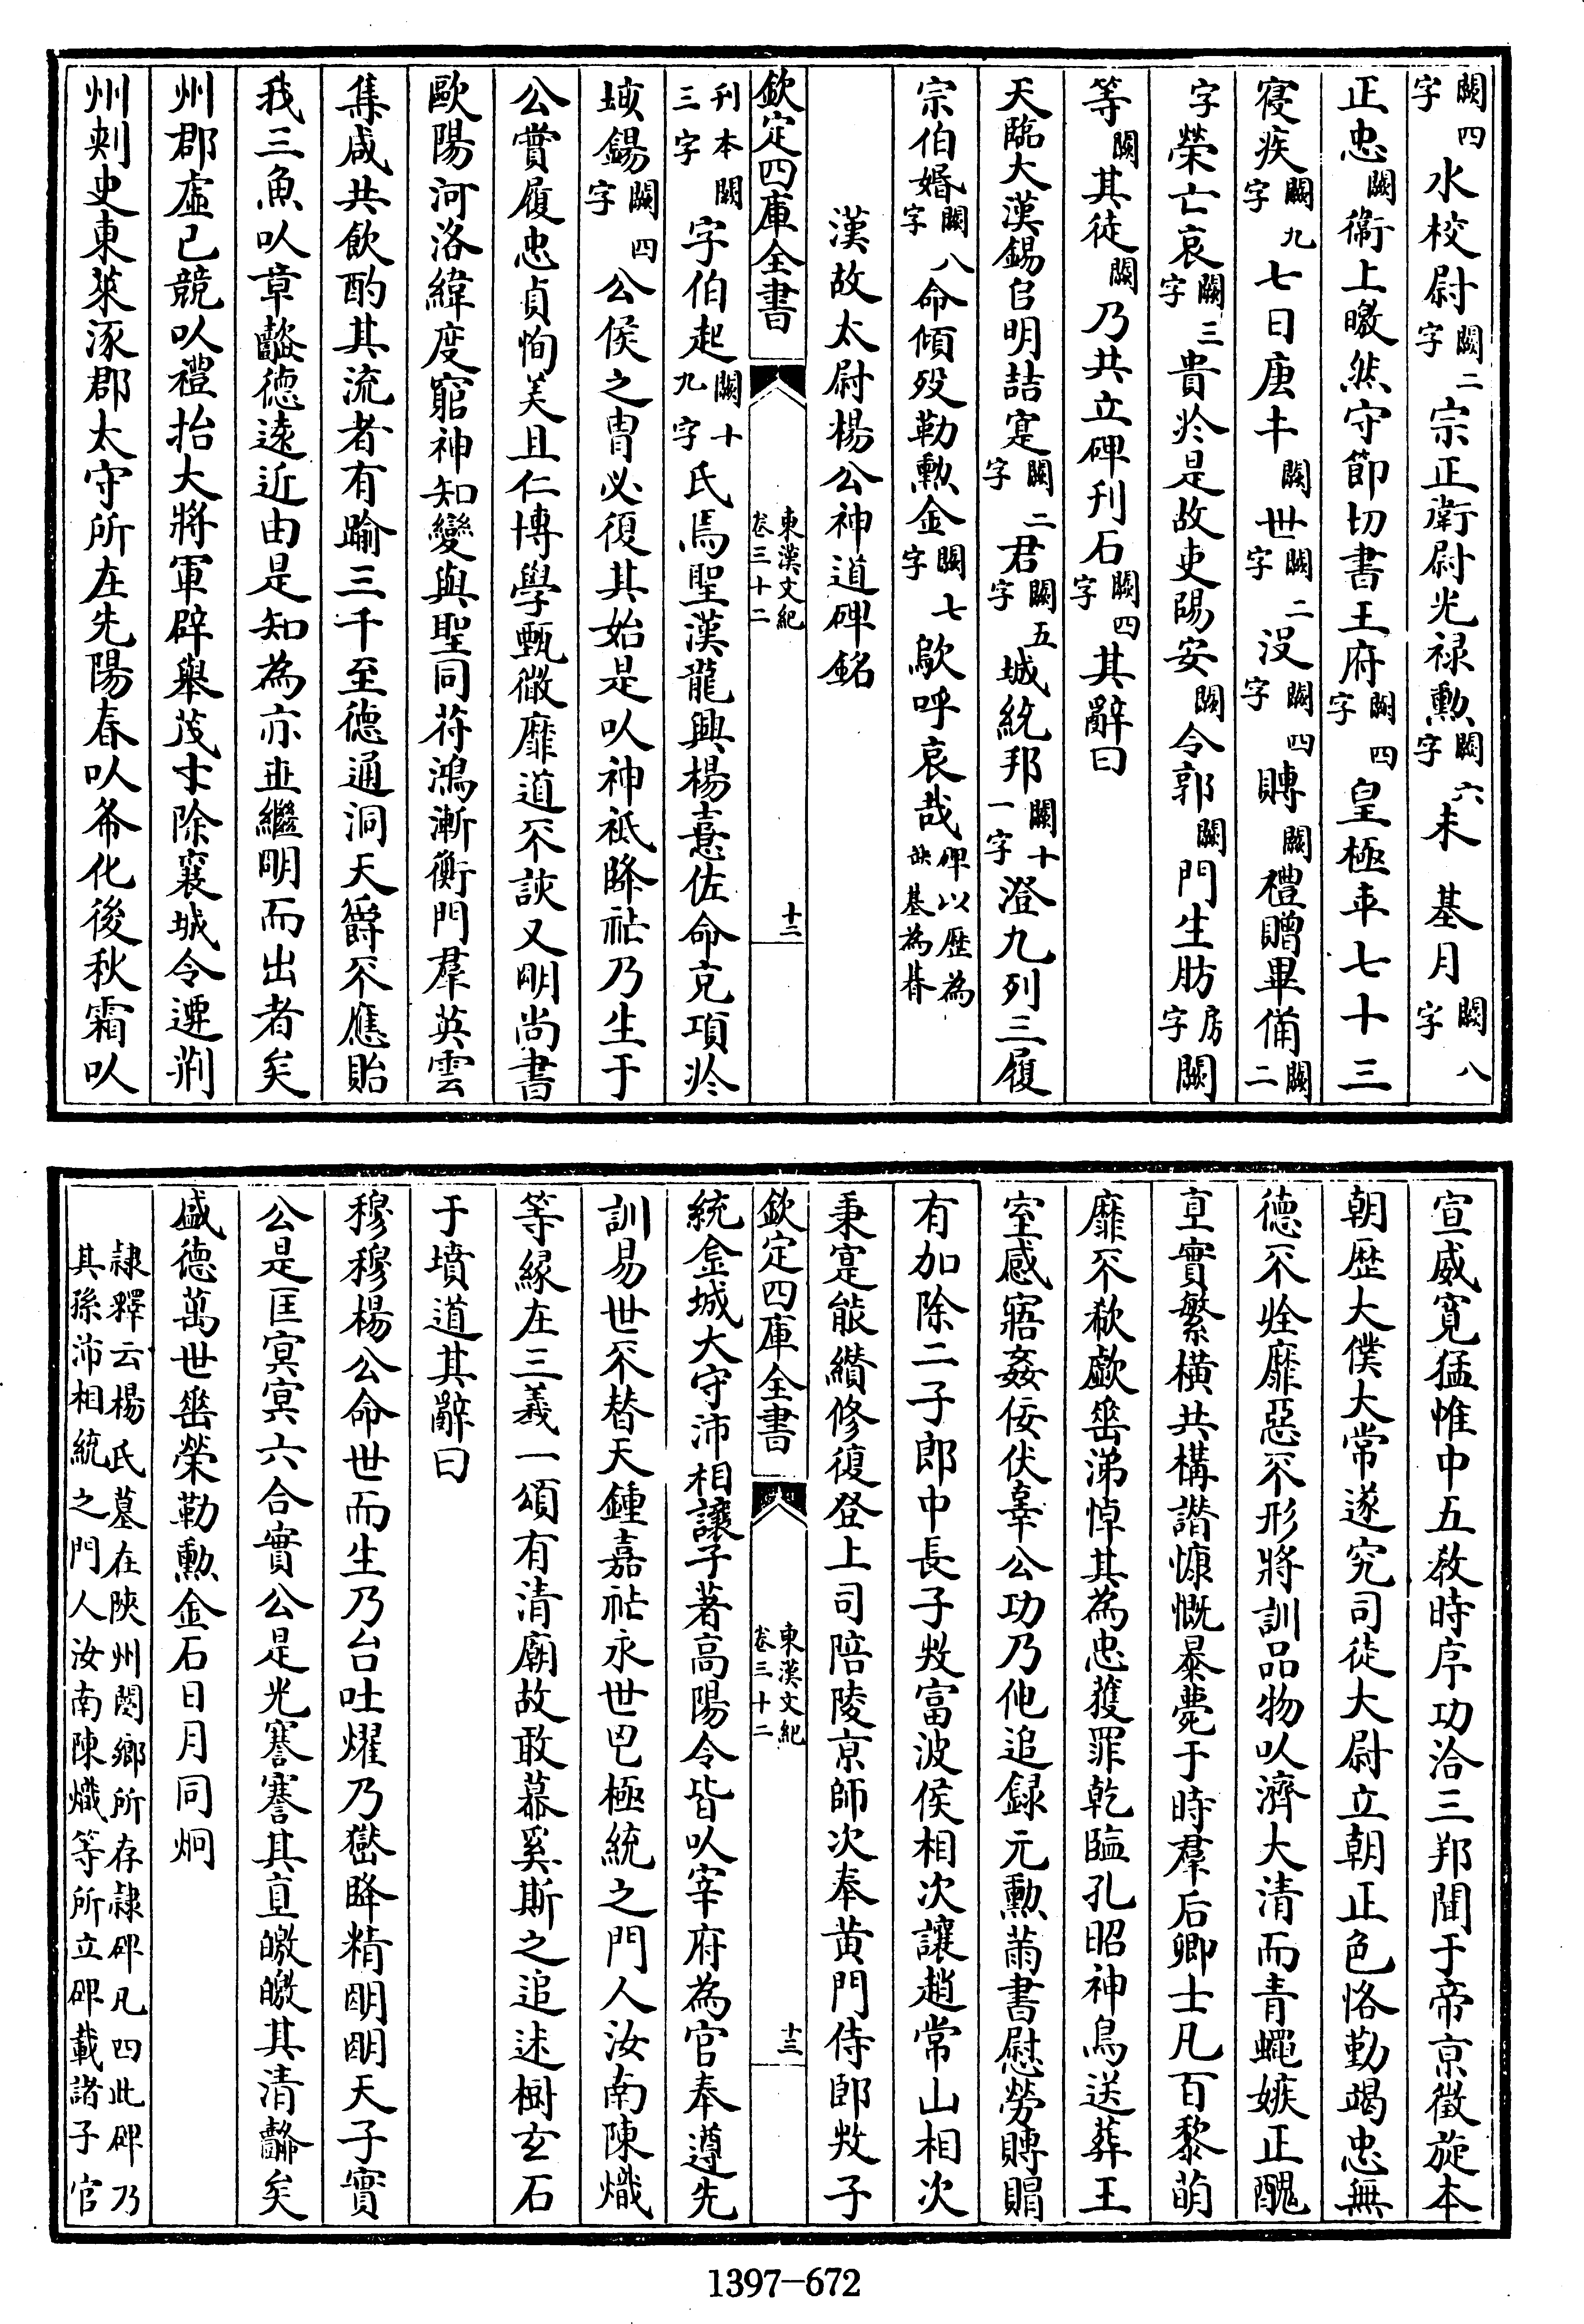 闕四字水校尉闕二字宗正衛尉光祿勲闕六字未 基月闕八字
正忠闕衞上曒然守節切書王府闕四字皇極年七十三
寑疾闕九字七日唐牛闕世闕二字没闕四字賻闕禮贈畢備闕二
字榮亡哀闕三字貴於是故吏陽安闕令郭闕門生肪房字闕
等闕其徒闕乃共立碑刋石闕四字其辭曰
天臨大漢錫㠯明喆寔闕二字君闕五字城統邦闕十一字澄九列三履
宗伯婚闕八字命傾歿勒勲金闕七字歍呼哀哉碑以歴為歍基為朞
漢故太尉楊公神道碑銘
欽定四庫全書
東漢文紀
卷三十二
十二
刋本闕三字字伯起闕十九字氏焉聖漢龍興楊憙佐命克項於
垓錫闕四字公侯之胄必復其始是以神祇降祉乃生于
公嘗履忠貞恂美且仁博學甄微靡道不該又明尚書
歐陽河洛緯度窮神知變與聖同苻鴻漸衡門羣英雲
集咸共飲酌其流者有踰三千至德通洞天爵不應貽
我三魚以章懿德遠近由是知為亦世繼明而出者矣
州郡虛己競以禮招大將軍辟舉茂才除襄城令遷荊
州刺史東萊涿郡太守所在先陽春以布化後秋霜以
宣威寛猛惟中五敎時序功洽三邦聞于帝京徵旋本
朝歴大僕大常遂究司徒大尉立朝正色恪勤竭忠無
德不烓靡惡不形將訓品物以濟大清而青蠅嫉正醜
直實繁横共構譖慷慨暴薨于時羣后卿士凡百黎萌
靡不欷歔垂涕悼其為忠獲罪乾臨孔昭神鳥送葬王
室感寤姦佞伏辜公功乃伸追録元勲䇮書慰勞賻賵
有加除二子郎中長子牧富波侯相次讓趙常山相次
秉寔能纘修復登上司陪陵京師次奉黄門侍郎牧子
欽定四庫全書
東漢文紀
卷三十二
十三
統金城大守沛相讓子著高陽令皆以宰府為官奉遵先
訓易世不替天鍾嘉祉永世罔極統之門人汝南陳熾
等緣在三義一頌有清廟故敢慕奚斯之追述樹玄石
于墳道其辭曰
穆穆楊公命世而生乃台吐燿乃嶽降精明明天子實
公是匡㝠㝠六合實公是光謇謇其直皦皦其清懿矣
盛德萬世垂榮勒勲金石日月同炯
隷釋云楊氏墓在陝州閿鄉所存隷碑凡四此碑乃
其孫沛相統之門人汝南陳熾等所立碑載諸子官
1397-672